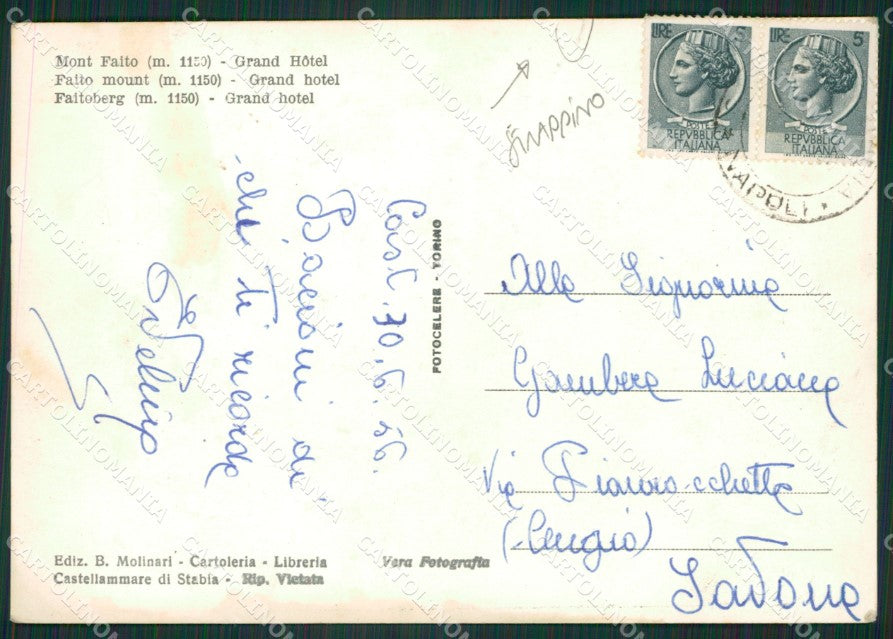 Mont Faito (m. 1150) - Grand Hôtel
Faito mount (m. 1150) - Grand hotel
Faitoberg (m. 1150) - Grand hotel
STRAPPINO
LIRE 5
POSTE
REPVBBLICA
ITALIANA
LIRE 5
POSTE
REPVBBLICA
ITALIANA
NAPOLI
Cast. 30.6.56.
Bacioni da
chi ti ricorda
FOTOCELERE - TORINO
Alla Signorina
Gambera Luciana
Via
(Cengio)
Savona
Ediz. B. Molinari - Cartoleria - Libreria
Castellammare di Stabia - Rip. Vietata
Vera Fotografia
CARTOLINOMANIA